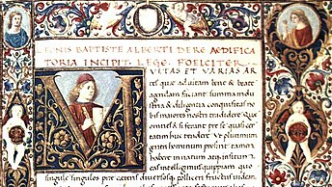 BAPTISTE ALBERTI DE RE AEDIFICA
TORIA INCIPIT. LEGE. FOELICITER.
M VLTAS ET VARIAS AR
tes quae ad vitam bene & beate
agendam faciant summa indu
stria & diligentia conquisitas no
bis maiores nostri tradidere
omnes & si ferant prae se quasi cer
tatim huc tendere ut plurimum
generi hominum prosint tamen
habere innatum atque insitum
eas intelligimus quippiam quo
singulae singulos prae ceteris diversosque polliceri fructus